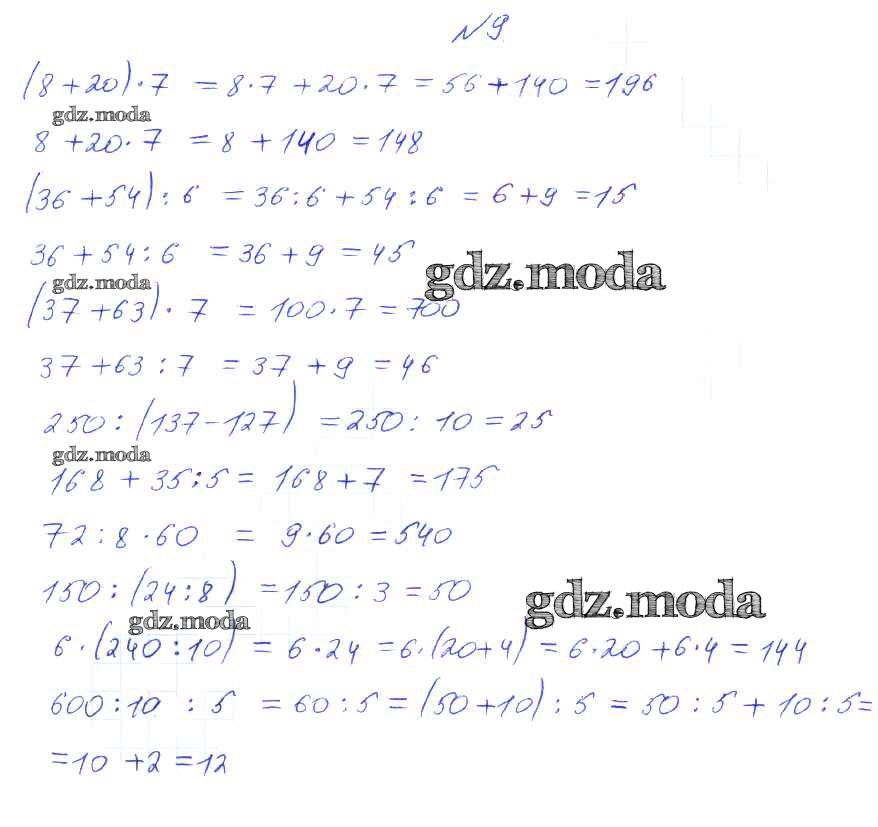 №9
(8+20)·7 = 8·7 + 20·7 = 56 + 140 = 196
gdz.moda
8 + 20·7 = 8 + 140 = 148
(36 + 54) : 6 = 36 : 6 + 54 : 6 = 6 + 9 = 15
36 + 54 : 6 = 36 + 9 = 45
gdz.moda
gdz.moda
(37 + 63)·7 = 100·7 = 700
37 + 63 : 7 = 37 + 9 = 46
250 : (137 - 127) = 250 : 10 = 25
gdz.moda
168 + 35 : 5 = 168 + 7 = 175
72 : 8 · 60 = 9·60 = 540
150 : (24 : 8) = 150 : 3 = 50
gdz.moda
gdz.moda
6·(240 : 10) = 6·24 = 6·(20+4) = 6·20 + 6·4 = 144
600 : 10 : 5 = 60 : 5 = (50 + 10) : 5 = 50 : 5 + 10 : 5 =
= 10 + 2 = 12